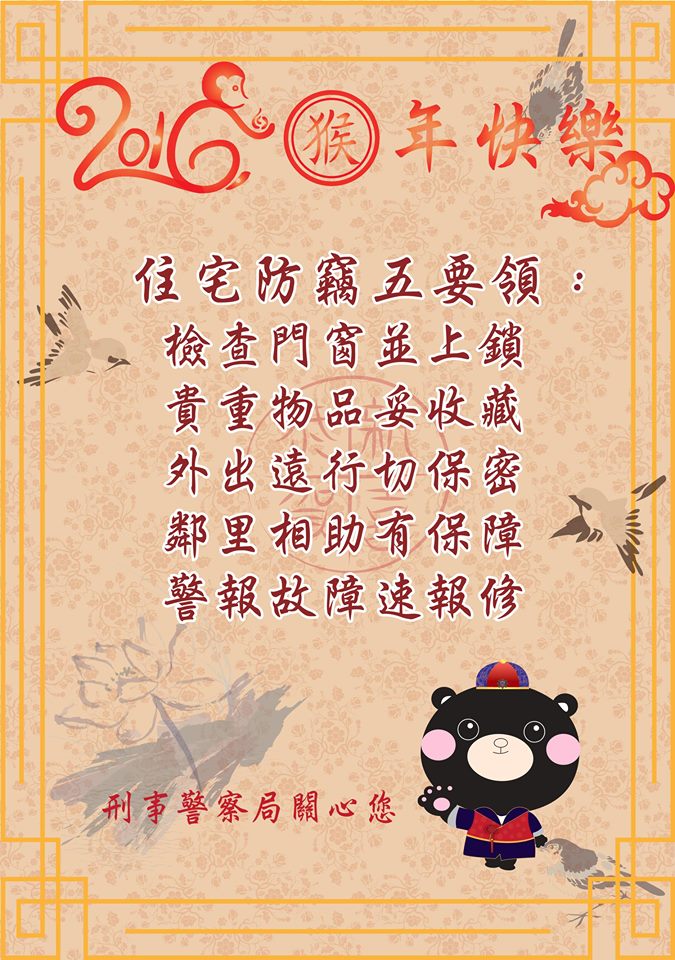 2016 猴 年快樂
住宅防竊五要領：
檢查門窗並上鎖
貴重物品妥收藏
外出遠行切保密
鄰里相助有保障
警報故障速報修
刑事警察局關心您